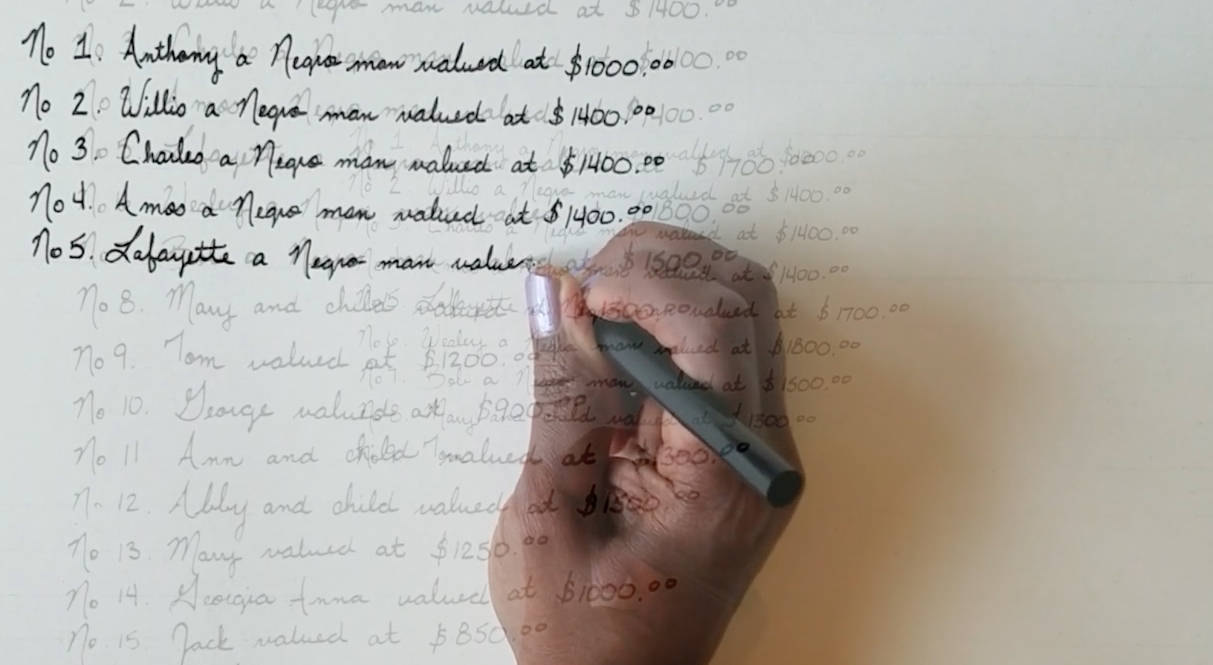 No 2. Willis a Negro man valued at $1400.00
No 1. Anthony a Negro man valued at $1000.00
No 2. Willis a Negro man valued at $1400.00
No 3. Charles a Negro man valued at $1400.00
No 4. Amos a Negro man valued at $1400.00
No 5. Lafayette a Negro man value
No 8. Mary and child valued at $1300
No 9. Tom valued at $1200.00
No 10. George valued at $900.00
No 11 Ann and child valued at $1300.00
No 12. Abby and child valued at $1500.00
No 13. Mary valued at $1250.00
No 14. Georgia Anna valued at $1000.00
No. 15. Jack valued at $850.00
No 1. Anthony a Negro man valued at $1000.00
No 2. Willis a Negro man valued at $1400.00
No 3. Charles a Negro man valued at $1400.00
man valued at $1400.00
No 5. Lafayette a Negro man valued at $1700.00
No 6. Wesley a Negro man valued at $1800.00
No 7. Bob a Negro man valued at $1500.00
No 8. Mary and child valued at $1300.00